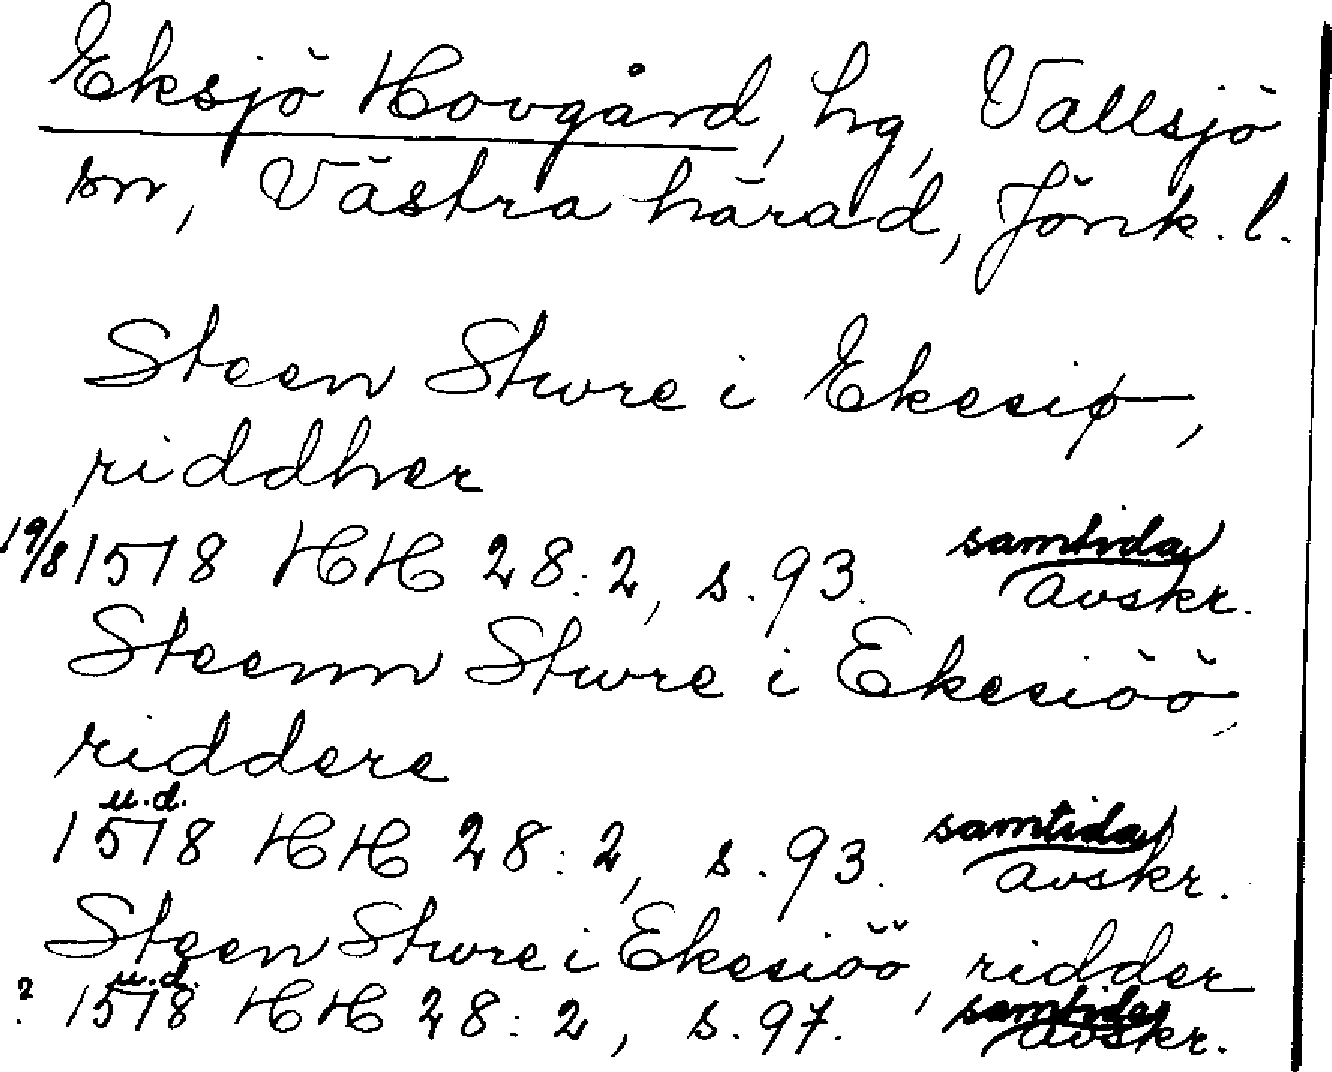 Eksjö Hovgård, hg, Vallsjö
sn, Västra härad, Jönk. l.
Steen Stwre i Ekesiø,
riddher
19/8 1518 HH 28:2, s. 93. samtida avskr.
Steenn Stwre i Ekesiöö,
riddere
u.d.
1518 HH 28:2, s. 93. samtida avskr.
Steen Stwre i Ekesiöö, ridder
u.d.
? 1518 HH 28:2, s. 97. samtida avskr.